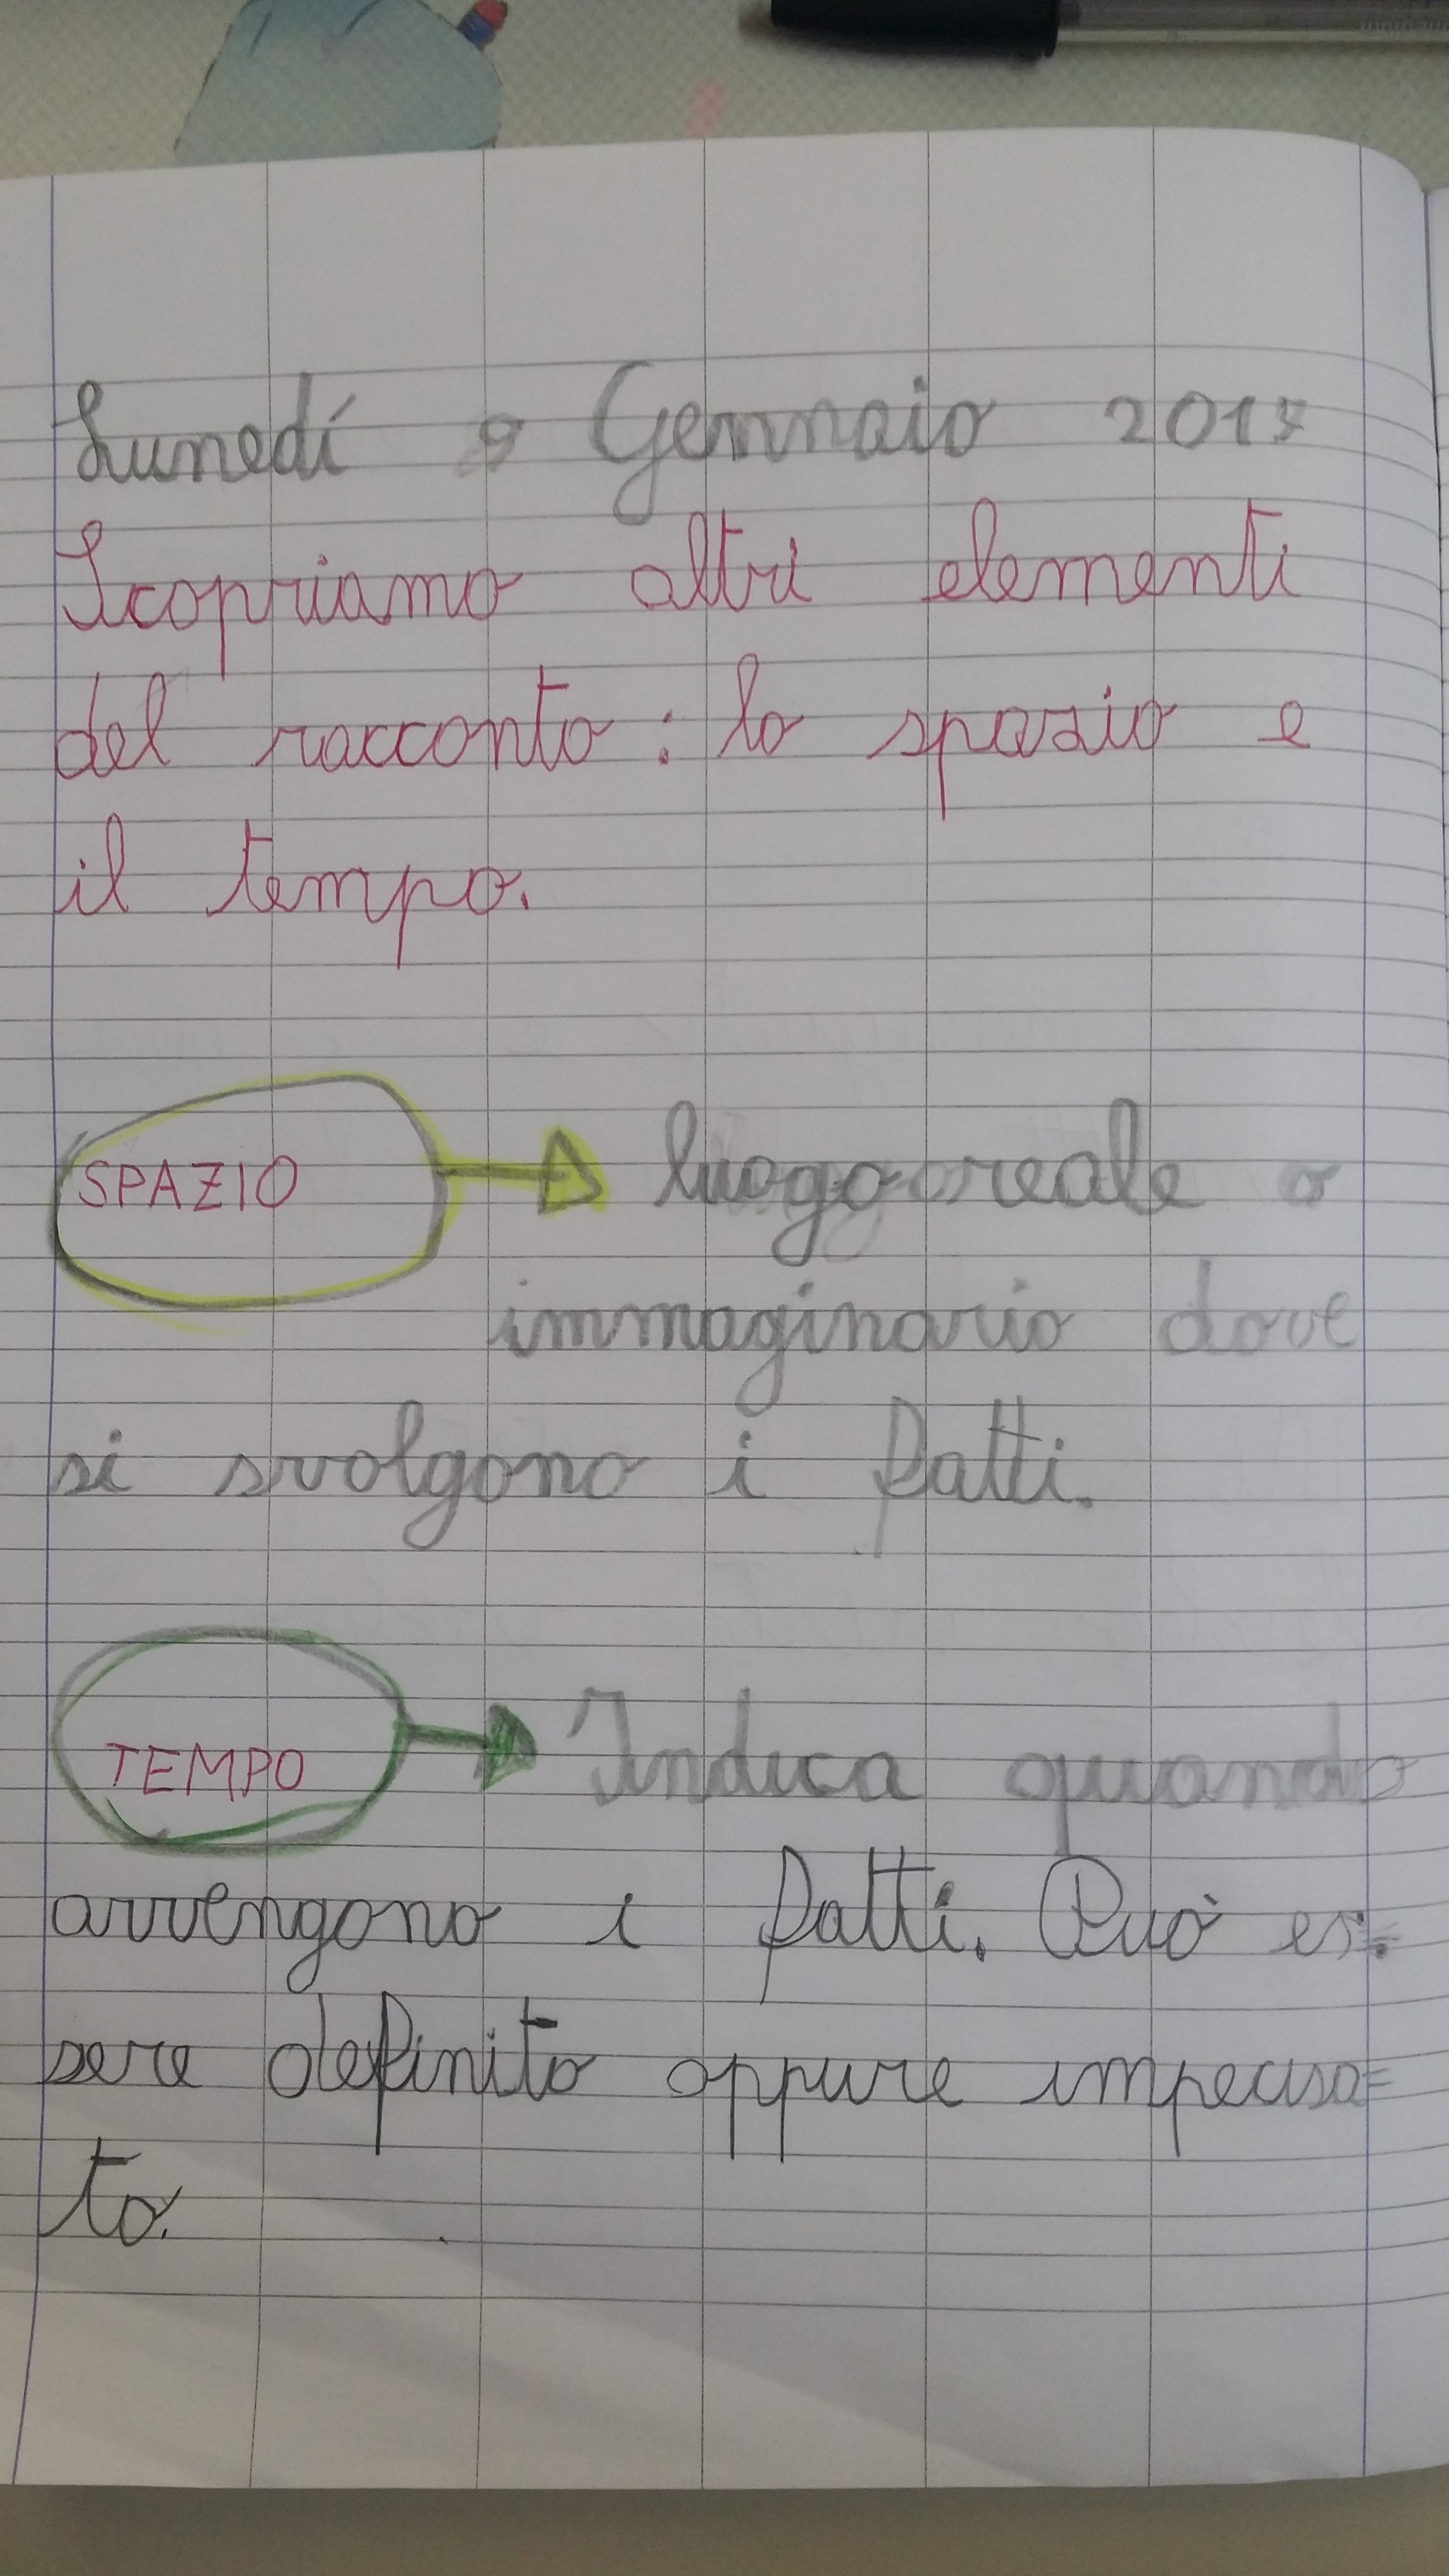 Lunedí 9 Gennaio 2017
Scopriamo altri elementi
del racconto: lo spazio e
il tempo.
SPAZIO luogo reale o
immaginario dove
si svolgono i fatti.
TEMPO Indica quando
avvengono i fatti. Può es=
sere definito oppure impecisa=
to.